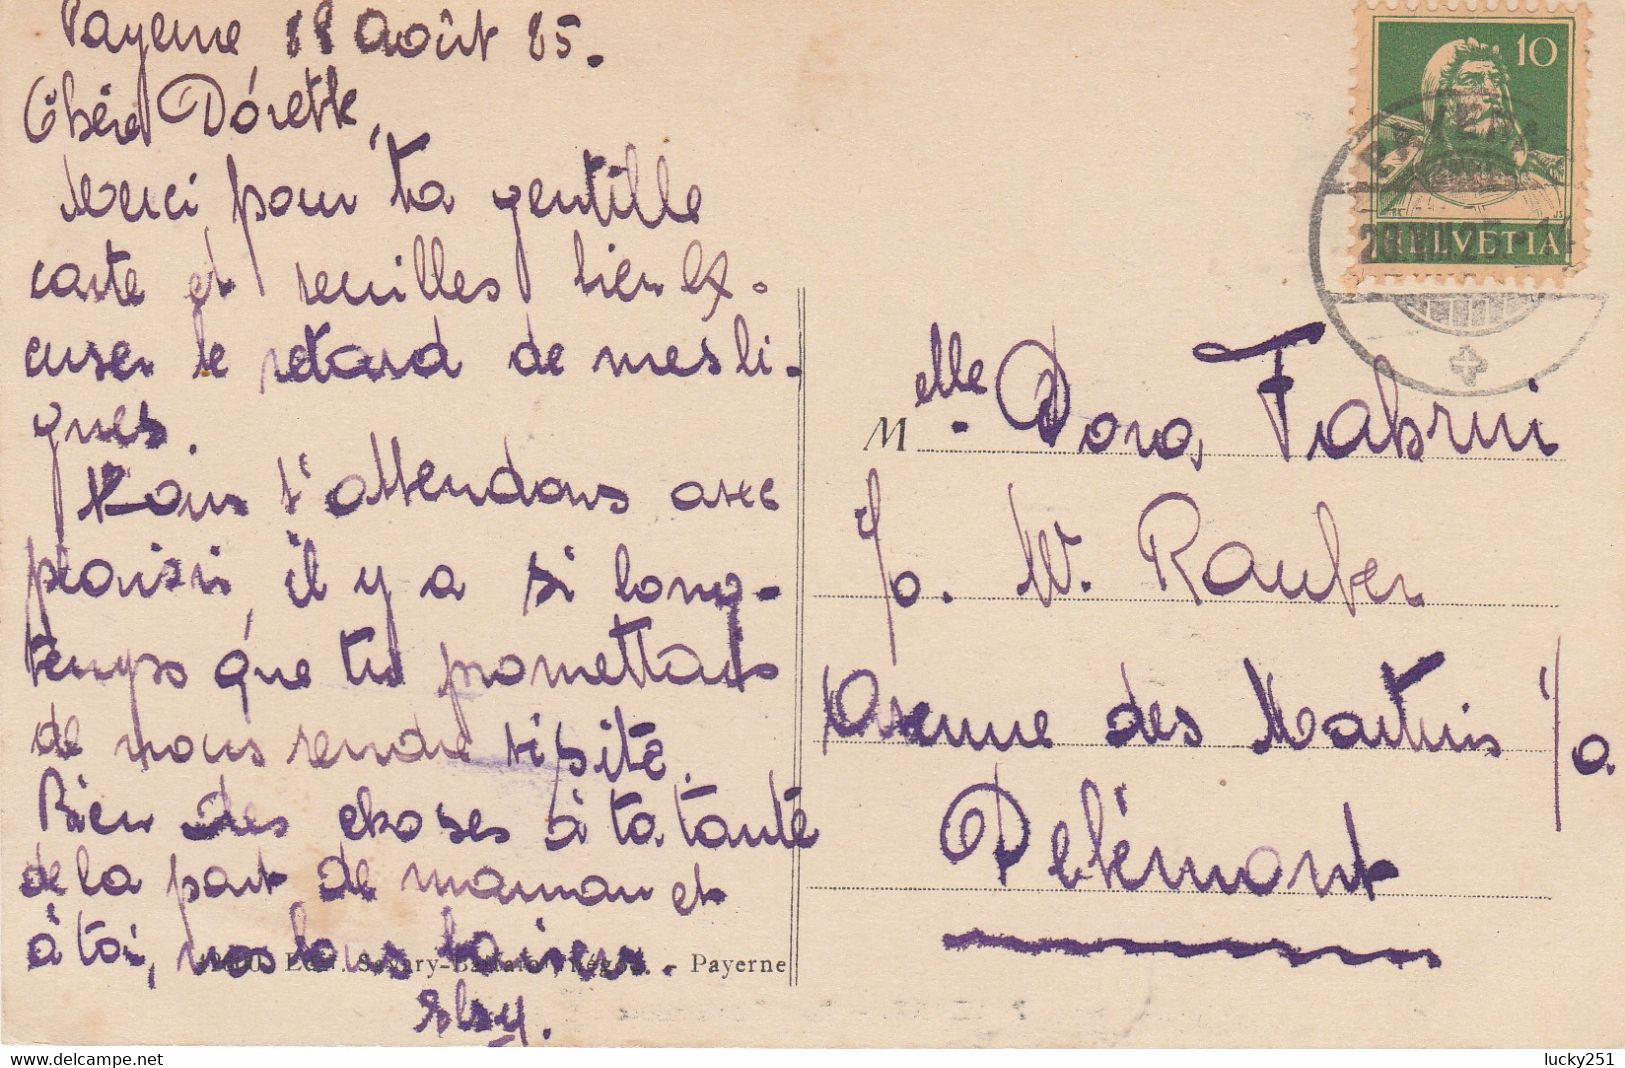 Payerne, 28 Août 25.
Chère Dórette,
Merci pour ta gentille
carte et veuilles bien ex-
cuser le retard de mes li-
gnes.
Nous t'attendons avec
plaisir, il y a si long-
temps que tu promettais
de nous rendre visite.
Bien des choses à ta tante
de la part de maman et
à toi, nos bons baisers.
Elsy.
Savary- . - Payerne
10
HELVETIA
PAYERNE
M elle. Dora Fabrini
c/o. W. Rauber
Avenue des Martins 1/a
Delémont
lucky251
www.delcampe.net